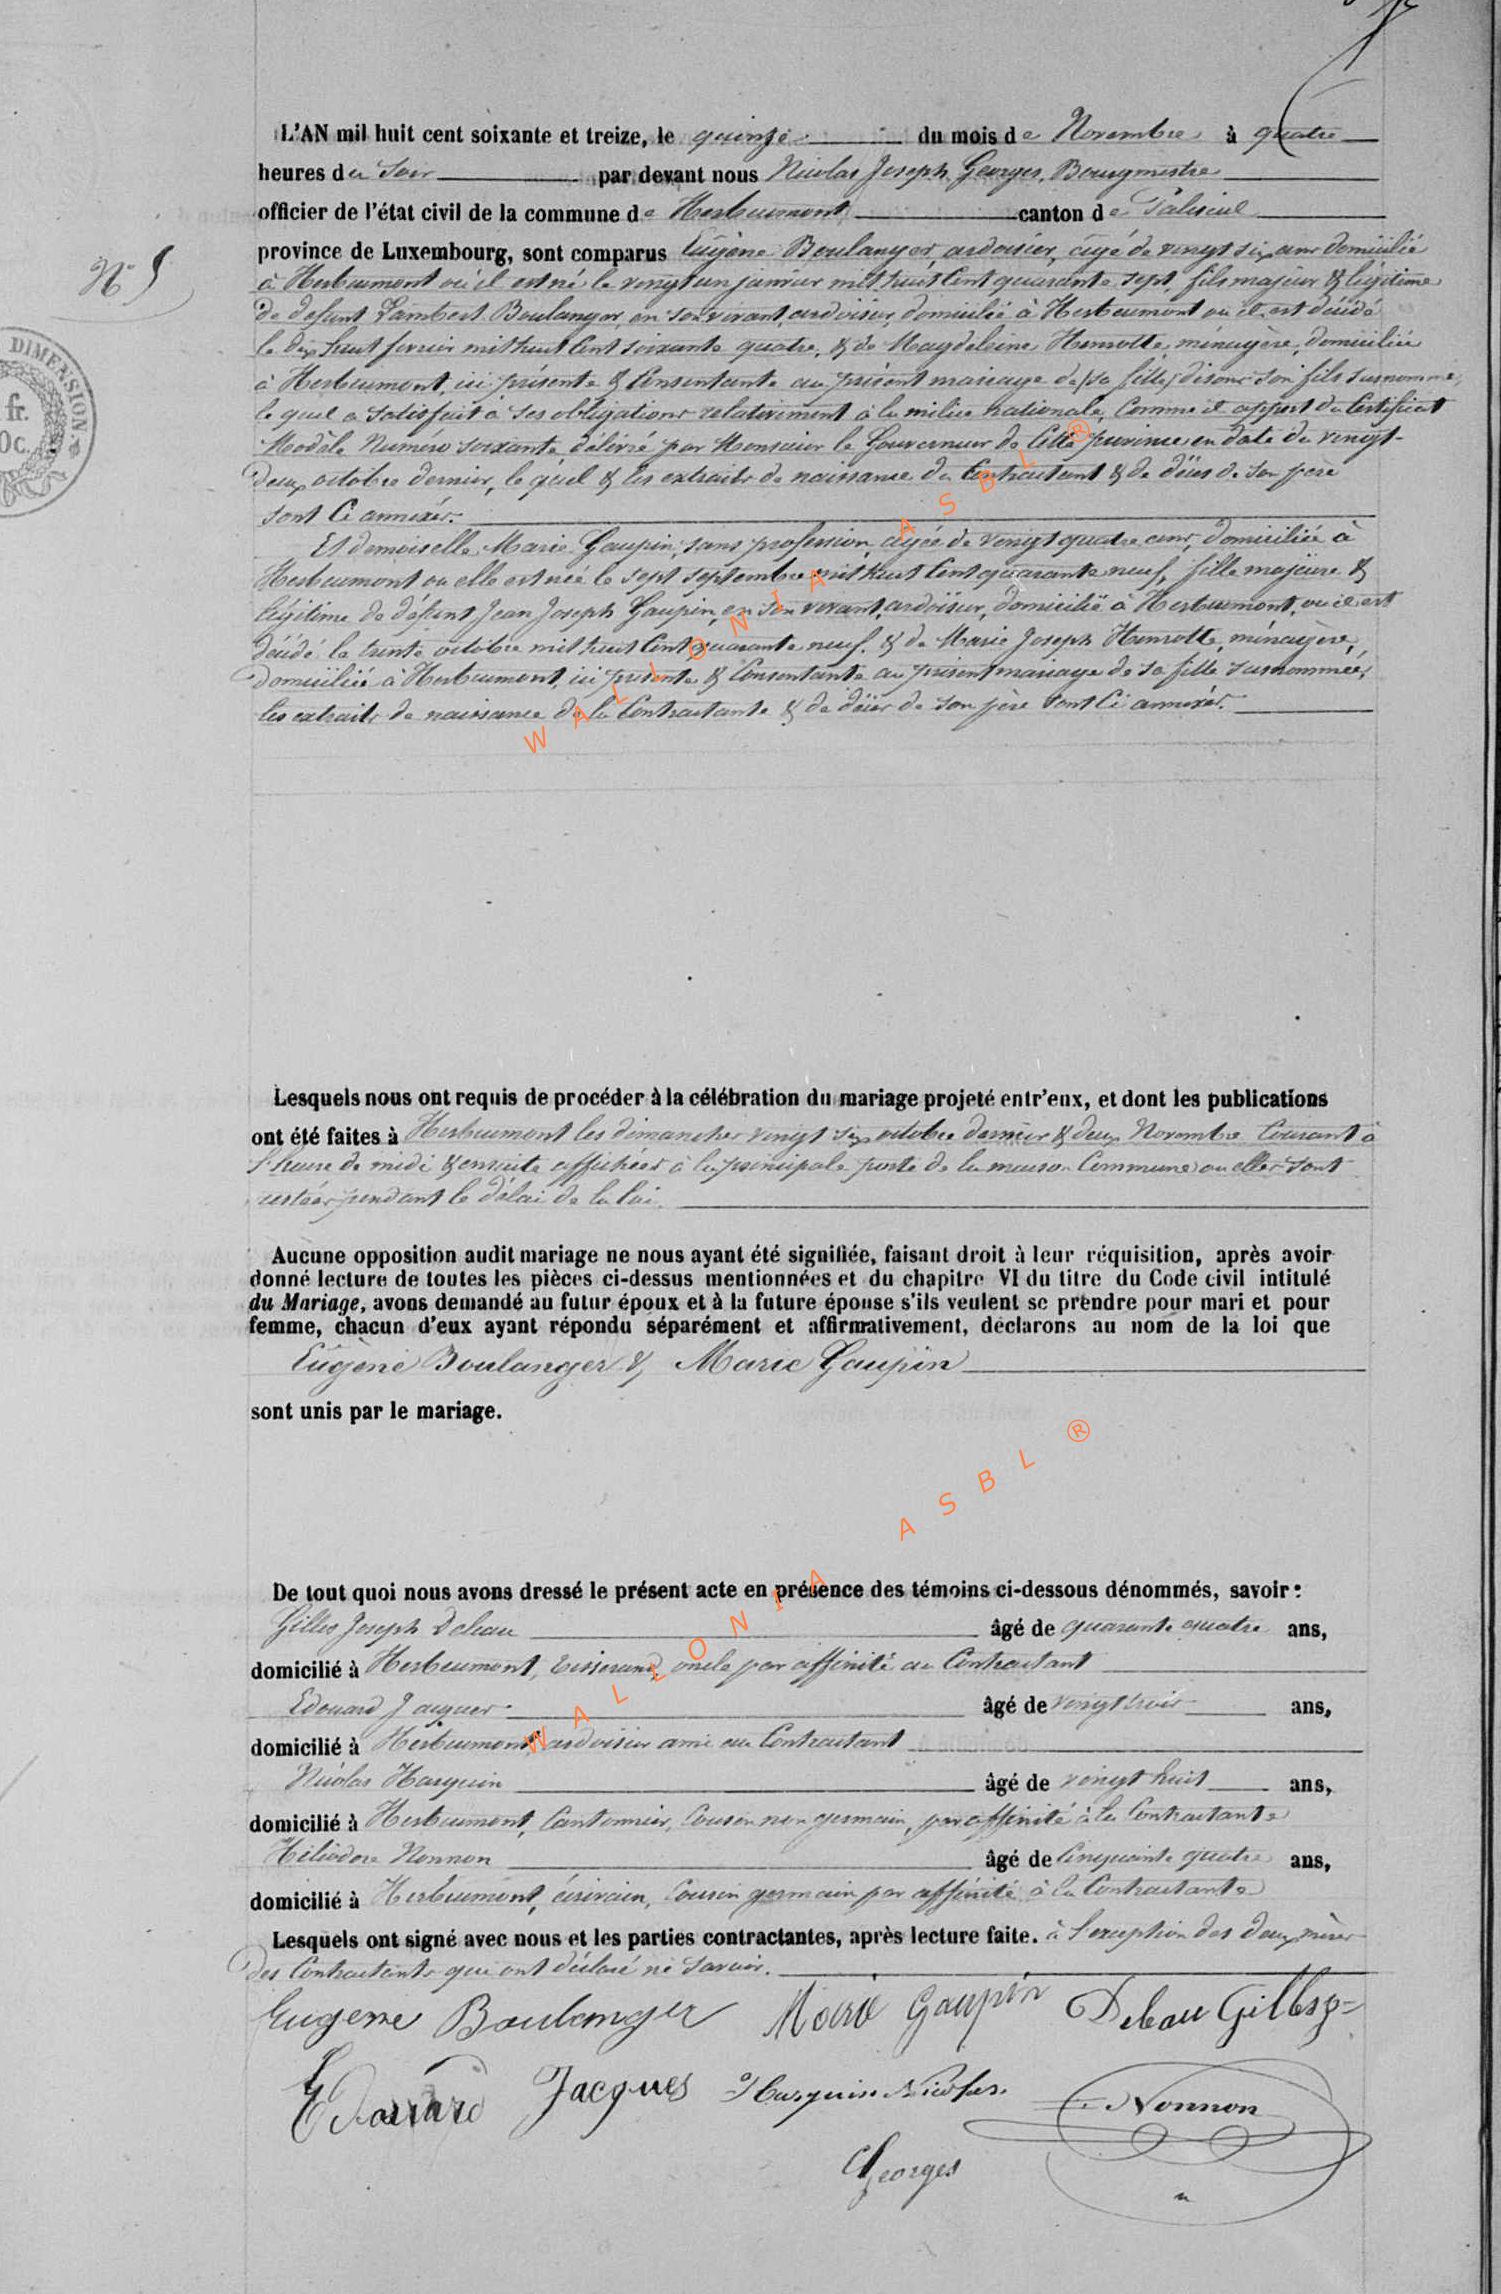 N° 5
DIMENSION
fr.
0c.
L'AN mil huit cent soixante et treize, le quinze du mois de Novembre à quatre
heures du Soir par devant nous Nicolas Joseph Georges, Bourgmestre
officier de l'état civil de la commune de Herbeumont canton de Paliseul
province de Luxembourg, sont comparus Eugène Boulanger, ardoisier, âgé de vingt six ans domicilié
à Herbeumont où il est né le vingt un janvier mil huit Cent quarante sept, fils majeur & légitime
de defunt Lambert Boulanger, en son vivant, ardoisier, domicilié à Herbeumont où il est décédé
le dix huit fevrier mil huit Cent soixante quatre, & de Magdeleine Hansotte, ménagère, domiciliée
à Herbeumont, ici présente & Consentante au présent mariage de (sa fille) disons son fils susnommé,
le quel a satisfait à ses obligations relativement à la milice nationale, Comme il appert du Certificat
Modèle Numéro soixante délivré par Monsieur le Gouverneur de Cette province en date du vingt-
deux octobre dernier, le quel & les extraits de naissance du Contractant & de décès de son père
sont Ci annexés.
Et demoiselle Marie Gaupin, sans profession, âgée de vingt quatre ans, domiciliée à
Herbeumont où elle est née le sept septembre mil huit Cent quarante neuf, fille majeure &
légitime de défunt Jean Joseph Gaupin, en son vivant, ardoisier, domicilié à Herbeumont, où il est
décédé le trente octobre mil huit Cent quarante neuf, & de Marie Joseph Hansotte, ménagère,
domiciliée à Herbeumont, ici présente & Consentante au présent mariage de sa fille susnommée,
les extraits de naissance de la Contractante & de décès de son père sont Ci annexés.
Lesquels nous ont requis de procéder à la célébration du mariage projeté entr'eux, et dont les publications
ont été faites à Herbeumont les dimanches vingt six octobre dernier & deux Novembre Courant à
l'heure de midi & ensuite affichées à la principale porte de la maison Commune où elles sont
restées pendant le délai de la loi.
Aucune opposition audit mariage ne nous ayant été signifiée, faisant droit à leur réquisition, après avoir
donné lecture de toutes les pièces ci-dessus mentionnées et du chapitre VI du titre du Code civil intitulé
du Mariage, avons demandé au futur époux et à la future épouse s'ils veulent se prendre pour mari et pour
femme, chacun d'eux ayant répondu séparément et affirmativement, déclarons au nom de la loi que
Eugène Boulanger & Marie Gaupin
sont unis par le mariage.
De tout quoi nous avons dressé le présent acte en présence des témoins ci-dessous dénommés, savoir :
Gilles Joseph Debau âgé de quarante quatre ans,
domicilié à Herbeumont, tisserand, oncle par affinité au Contractant
Edouard Jacques âgé de vingt trois ans,
domicilié à Herbeumont, ardoisier ami au Contractant
Nicolas Harquin âgé de vingt huit ans,
domicilié à Herbeumont, Cantonnier, Cousin non germain, par affinité à la Contractante
Héliodore Nonnon âgé de Cinquante quatre ans,
domicilié à Herbeumont, écrivain, Cousin germain par affinité à la Contractante
Lesquels ont signé avec nous et les parties contractantes, après lecture faite. à l'exception des deux mères
des Contractants qui ont déclaré ne savoir.
Eugene Boulanger Marie Gaupin Debau Gilles j=
Edouard Jacques Harquin Nicolas Nonnon
Georges
WALLONIA ASBL ®
WALLONIA ASBL ®